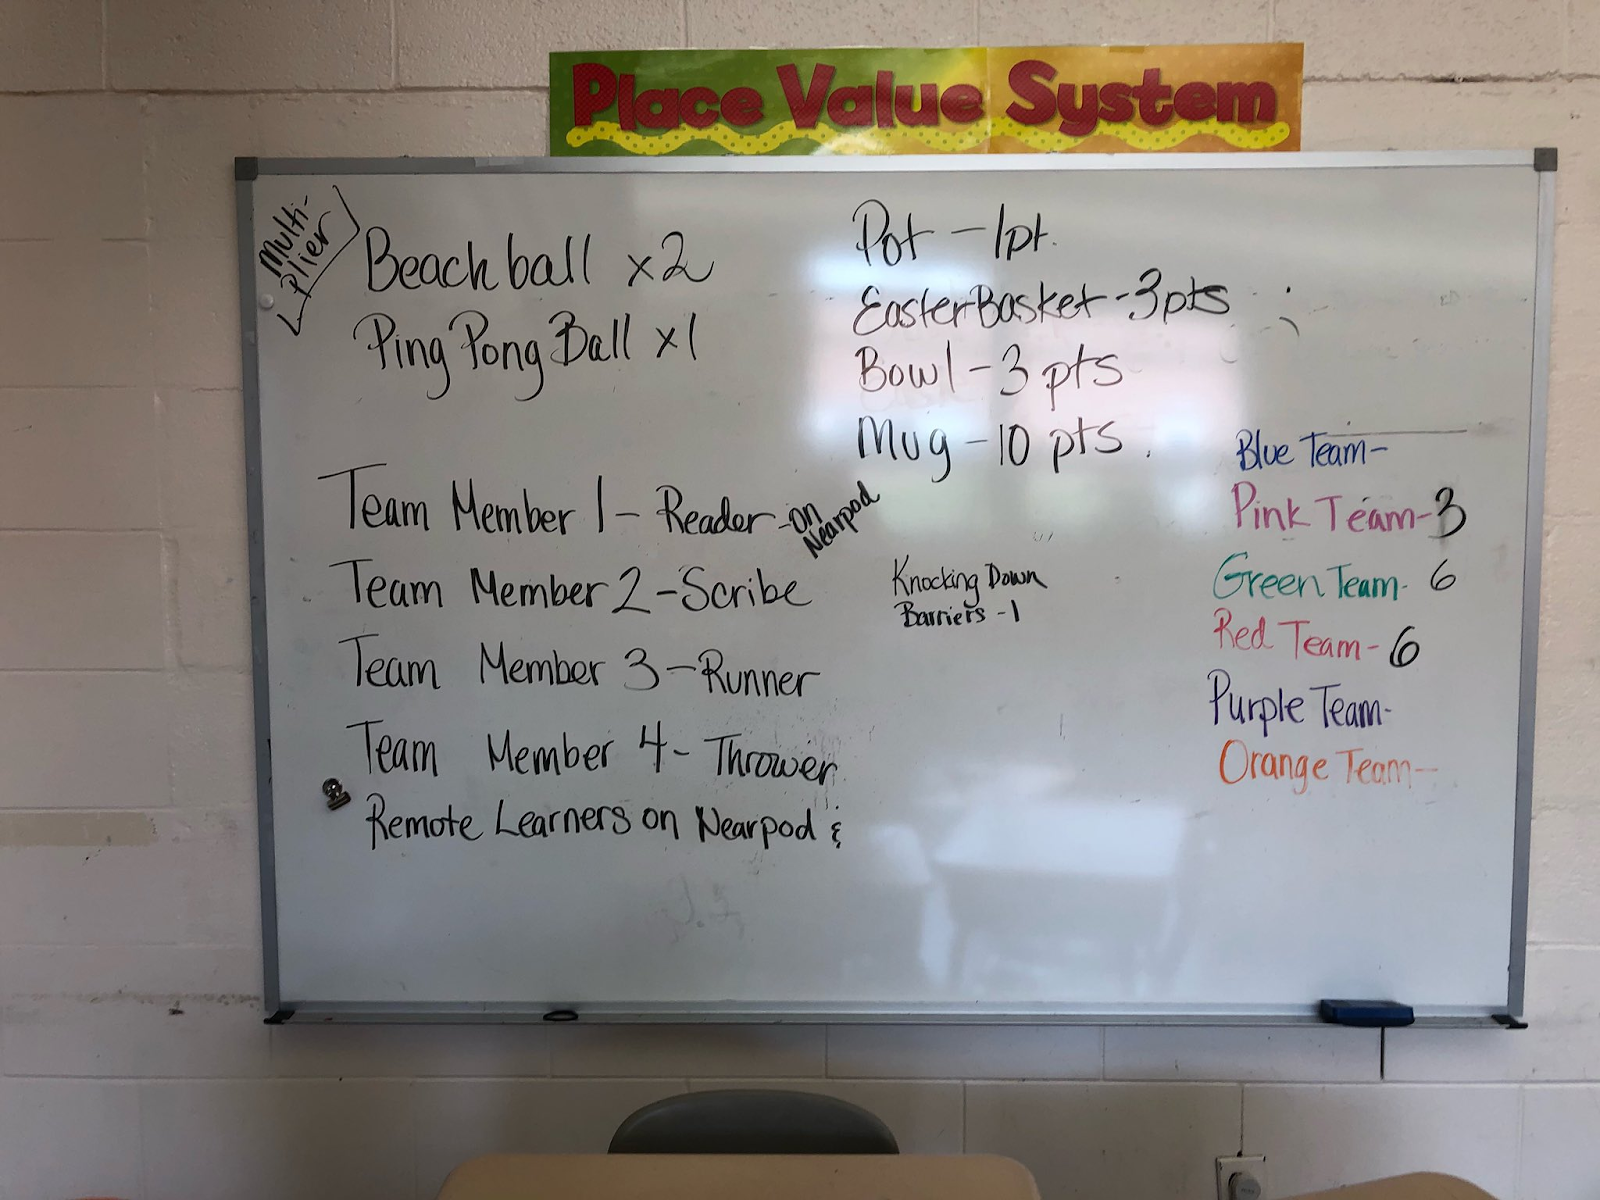 Place Value System
Multi-
plier
Beach ball x2
Ping Pong Ball x1
Pot - 1pt.
Easter Basket - 3pts
Bowl - 3 pts
Mug - 10 pts.
Team Member 1 - Reader - on
Nearpod
Team Member 2 - Scribe
Team Member 3 - Runner
Team Member 4 - Thrower
Remote Learners on Nearpod &
Knocking Down
Barriers - 1
Blue Team-
Pink Team-3
Green Team- 6
Red Team- 6
Purple Team-
Orange Team-